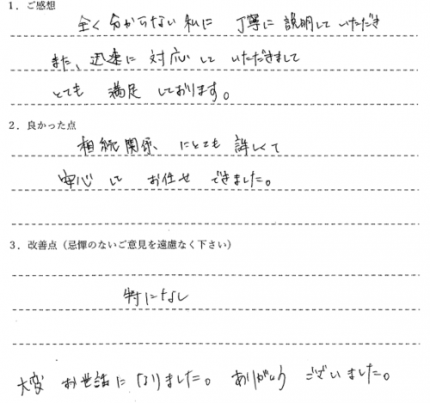 1．ご感想
全く分からない私に 丁寧に説明していただき
また、迅速に対応していただきまして
とても満足しております。
2．良かった点
相続関係にとても詳しくて
安心してお任せできました。
3．改善点（忌憚のないご意見を遠慮なく下さい）
特になし
大変お世話になりました。ありがとうございました。